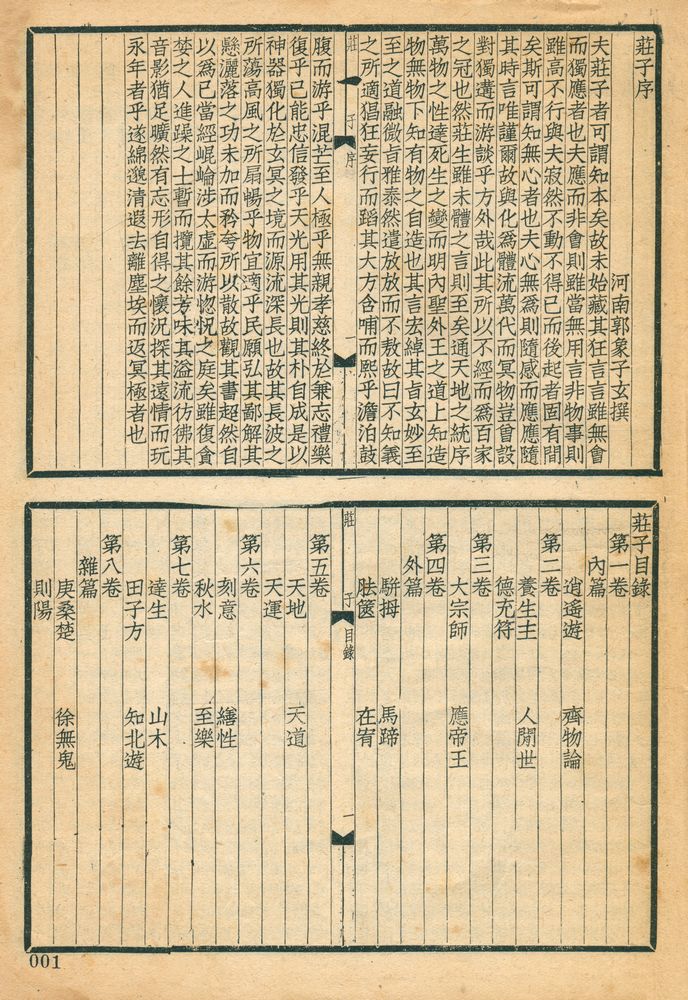 莊子序
河南郭象子玄撰
夫莊子者可謂知本矣故未始藏其狂言言雖無會
而獨應者也夫應而非會則雖當無用言非物事則
雖高不行與夫寂然不動不得已而後起者固有間
矣斯可謂知無心者也夫心無爲則隨感而應應隨
其時言唯謹爾故與化爲體流萬代而冥物豈曾設
對獨遘而游談乎方外哉此其所以不經而爲百家
之冠也然莊生雖未體之言則至矣通天地之統序
萬物之性達死生之變而明內聖外王之道上知造
物無物下知有物之自造也其言宏綽其旨玄妙至
至之道融微旨雅泰然遣放放而不敖故曰不知義
之所適猖狂妄行而蹈其大方含哺而熙乎澹泊鼓
莊子 序 一
腹而游乎混芒至人極乎無親孝慈終於兼忘禮樂
復乎已能忠信發乎天光用其光則其朴自成是以
神器獨化於玄冥之境而源流深長也故其長波之
所蕩高風之所扇暢乎物宜適乎民願弘其鄙解其
懸灑落之功未加而矜夸所以散故觀其書超然自
以爲已當經崐崘涉太虛而游惚怳之庭矣雖復貪
婪之人進躁之士暫而攬其餘芳味其溢流彷彿其
音影猶足曠然有忘形自得之懷況探其遠情而玩
永年者乎遂綿邈清遐去離塵埃而返冥極者也
莊子目錄
第一卷
內篇
逍遙遊 齊物論
第二卷
養生主 人閒世
德充符
第三卷
大宗師 應帝王
第四卷
外篇
駢拇 馬蹄
胠篋 在宥
莊子 目錄 一
第五卷
天地 天道
天運
第六卷
刻意 繕性
秋水 至樂
第七卷
達生 山木
田子方 知北遊
第八卷
雜篇
庚桑楚 徐無鬼
則陽
001